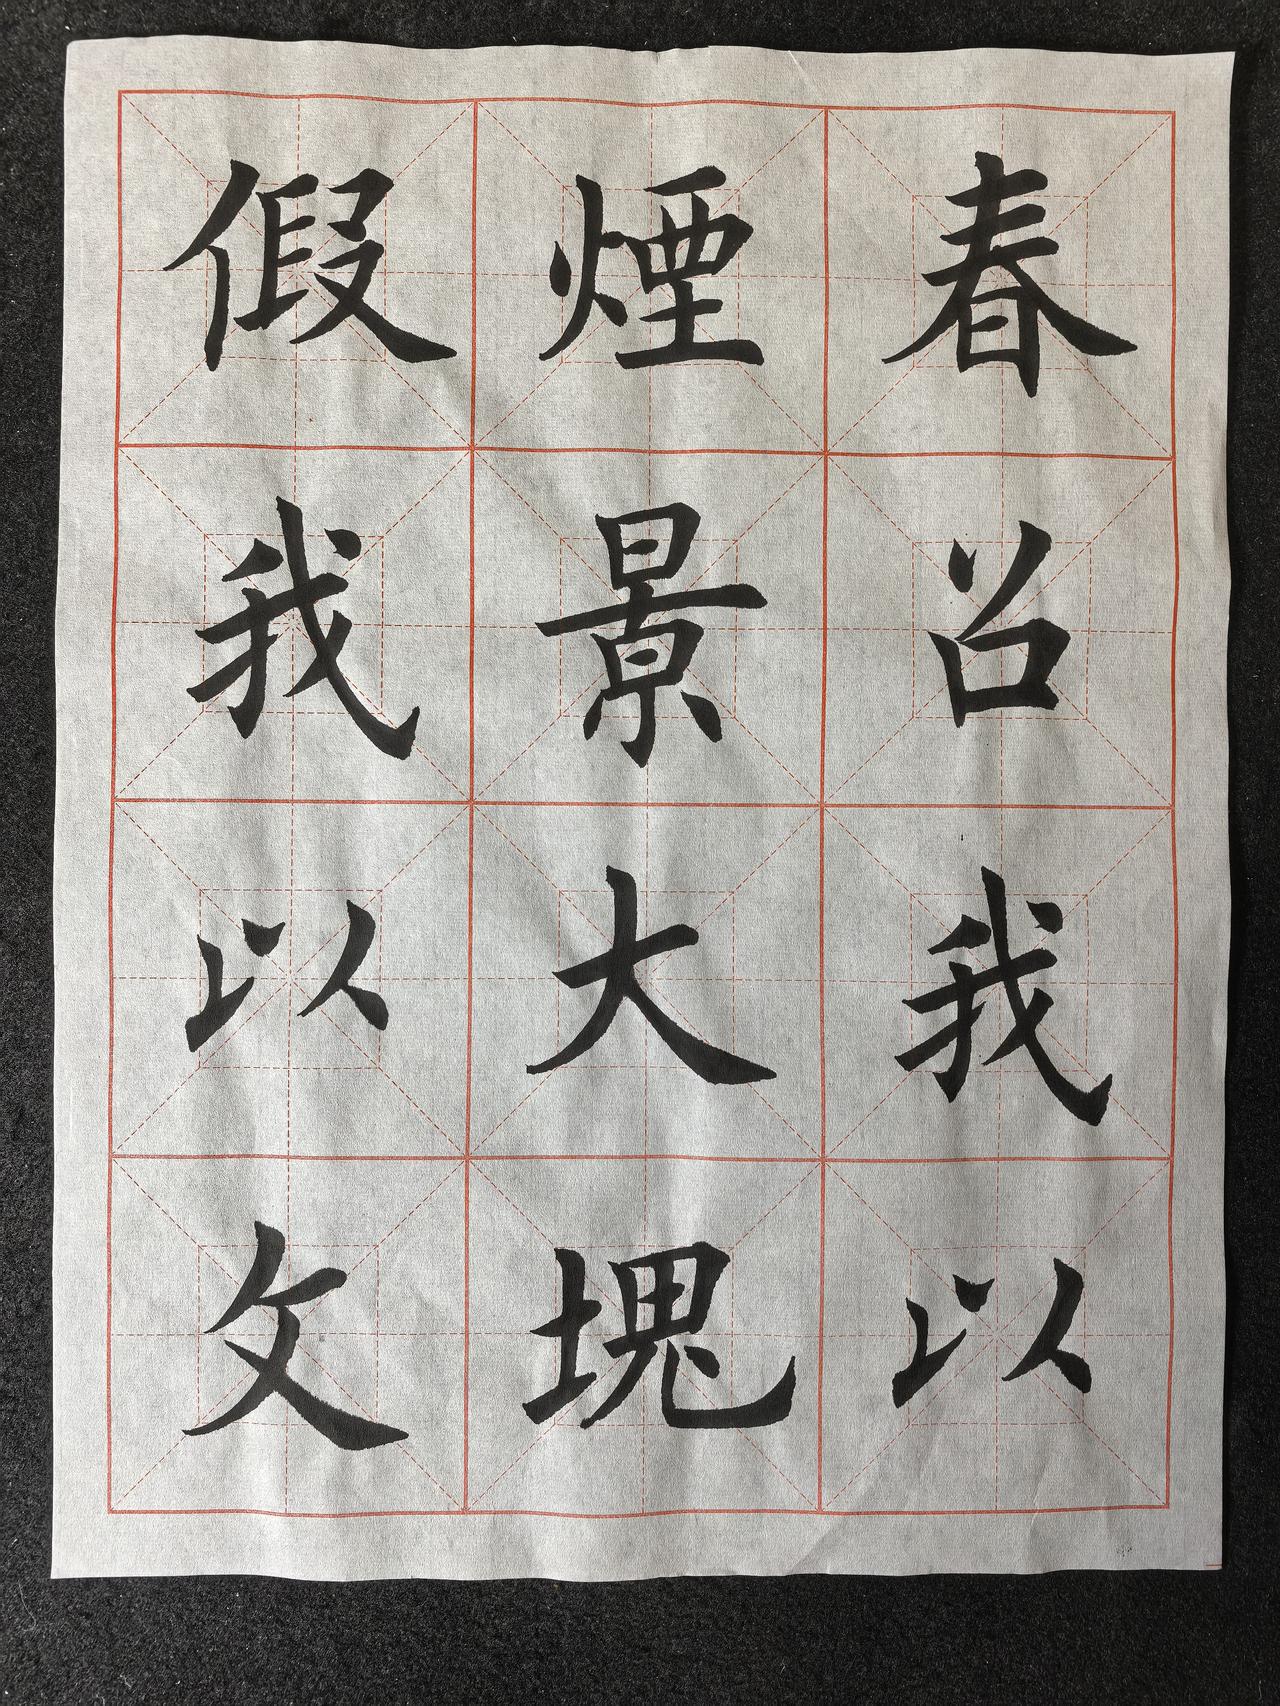 春召我以
煙景大塊
假我以文